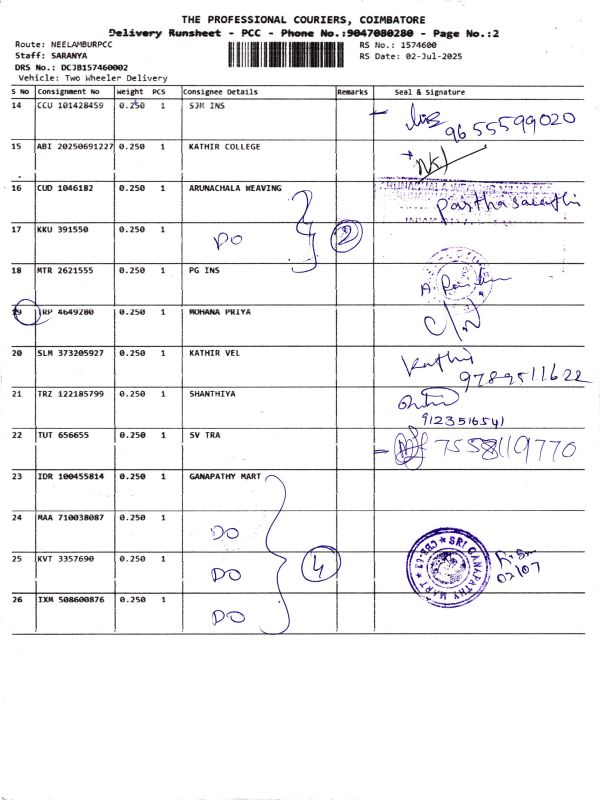 THE PROFESSIONAL COURIERS, COIMBATORE
Delivery Runsheet - PCC - Phone No.:9047080280 - Page No.:2
Route: NEELAMBURPCC RS No.: 1574600
Staff: SARANYA RS Date: 02-Jul-2025
DRS No.: DCJB157460002
Vehicle: Two Wheeler Delivery
S No Consignment No Weight PCS Consignee Details Remarks Seal & Signature
14 CCU 101428459 0.250 1 SJM INS 9655599020
15 ABI 20250691227 0.250 1 KATHIR COLLEGE
16 CUD 1046182 0.250 1 ARUNACHALA WEAVING Parthasarathi
17 KKU 391550 0.250 1 DO 2
18 MTR 2621555 0.250 1 PG INS
19 IRP 4649280 0.250 1 MOHANA PRIYA C/N
20 SLM 373205927 0.250 1 KATHIR VEL Kathir 9789511622
21 TRZ 122185799 0.250 1 SHANTHIYA 9123516541
22 TUT 656655 0.250 1 SV TRA 7558119770
23 IDR 100455814 0.250 1 GANAPATHY MART
24 MAA 710038087 0.250 1 DO
25 KVT 3357690 0.250 1 DO 4 SRI GANAPATHY MART CBE-62 02/07
26 IXM 508600876 0.250 1 DO